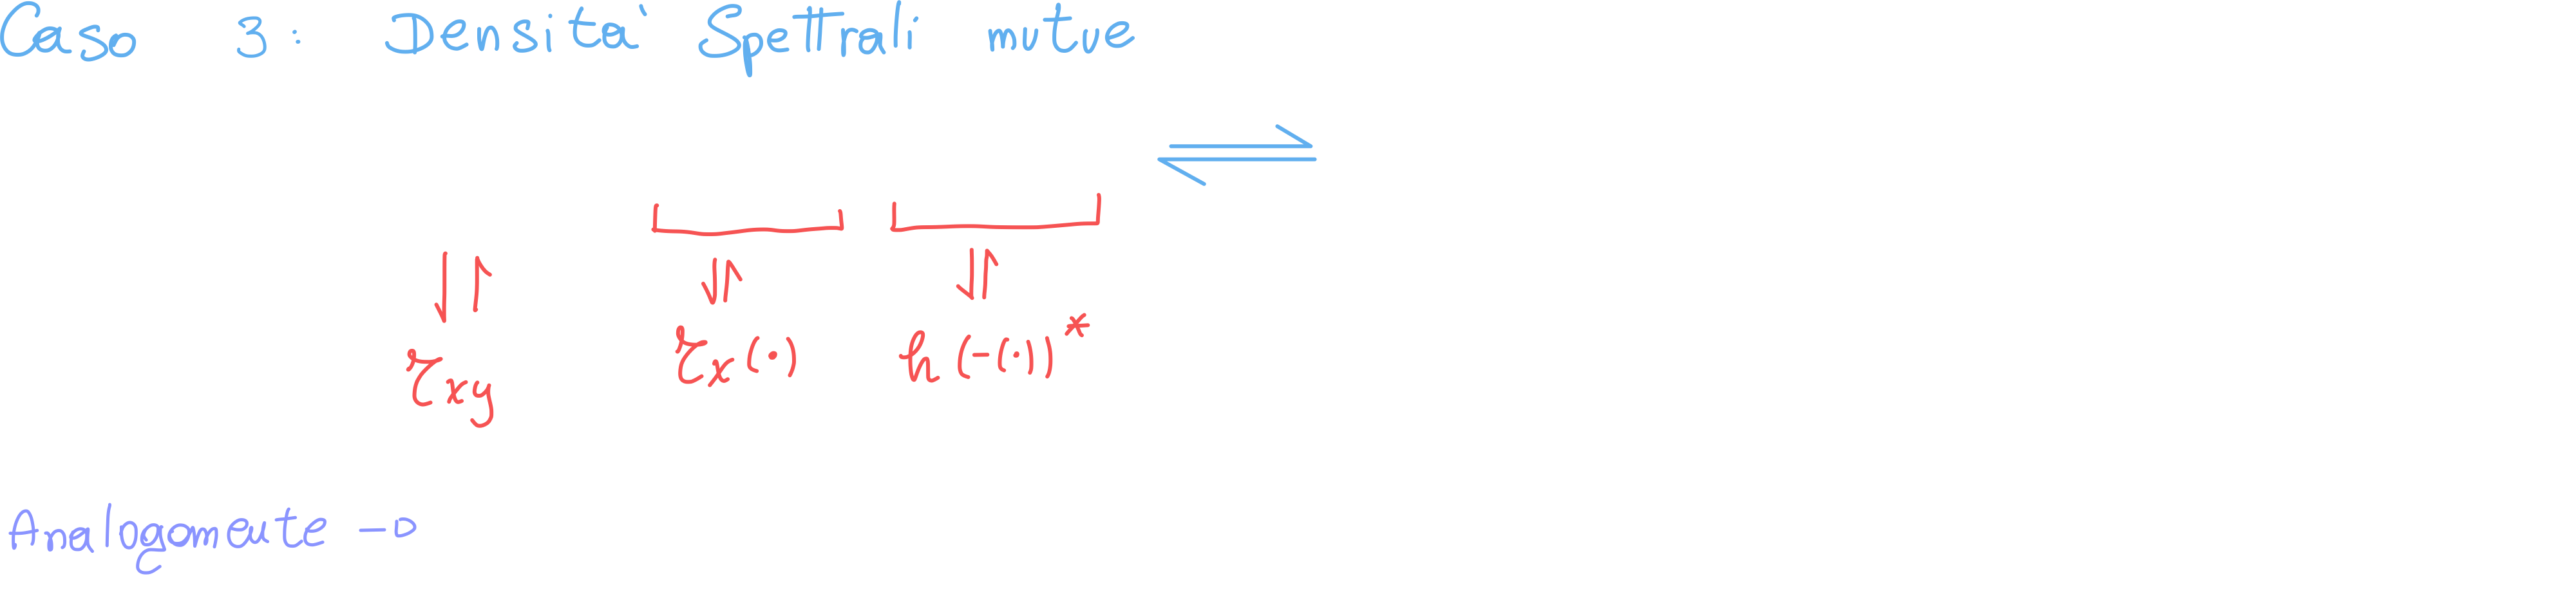 Caso 3: Densita' Spettrali mutue
⇌
⇃↾ ⇃↾ ⇃↾
r_xy r_x(·) h(-(·))*
Analogamente →